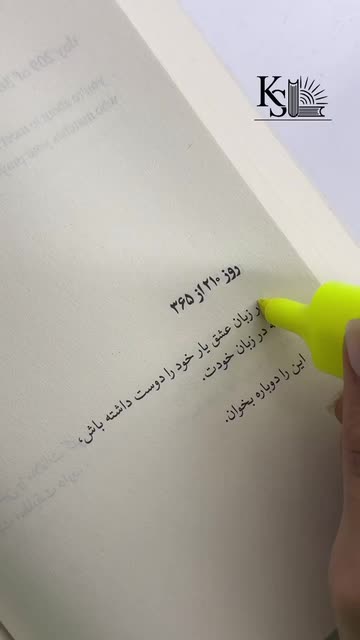 KS
روز ۲۱۰ از ۳۶۵
زبان عشق یار خود را دوست داشته باش،
در زبان خودت.
این را دوباره بخوان.